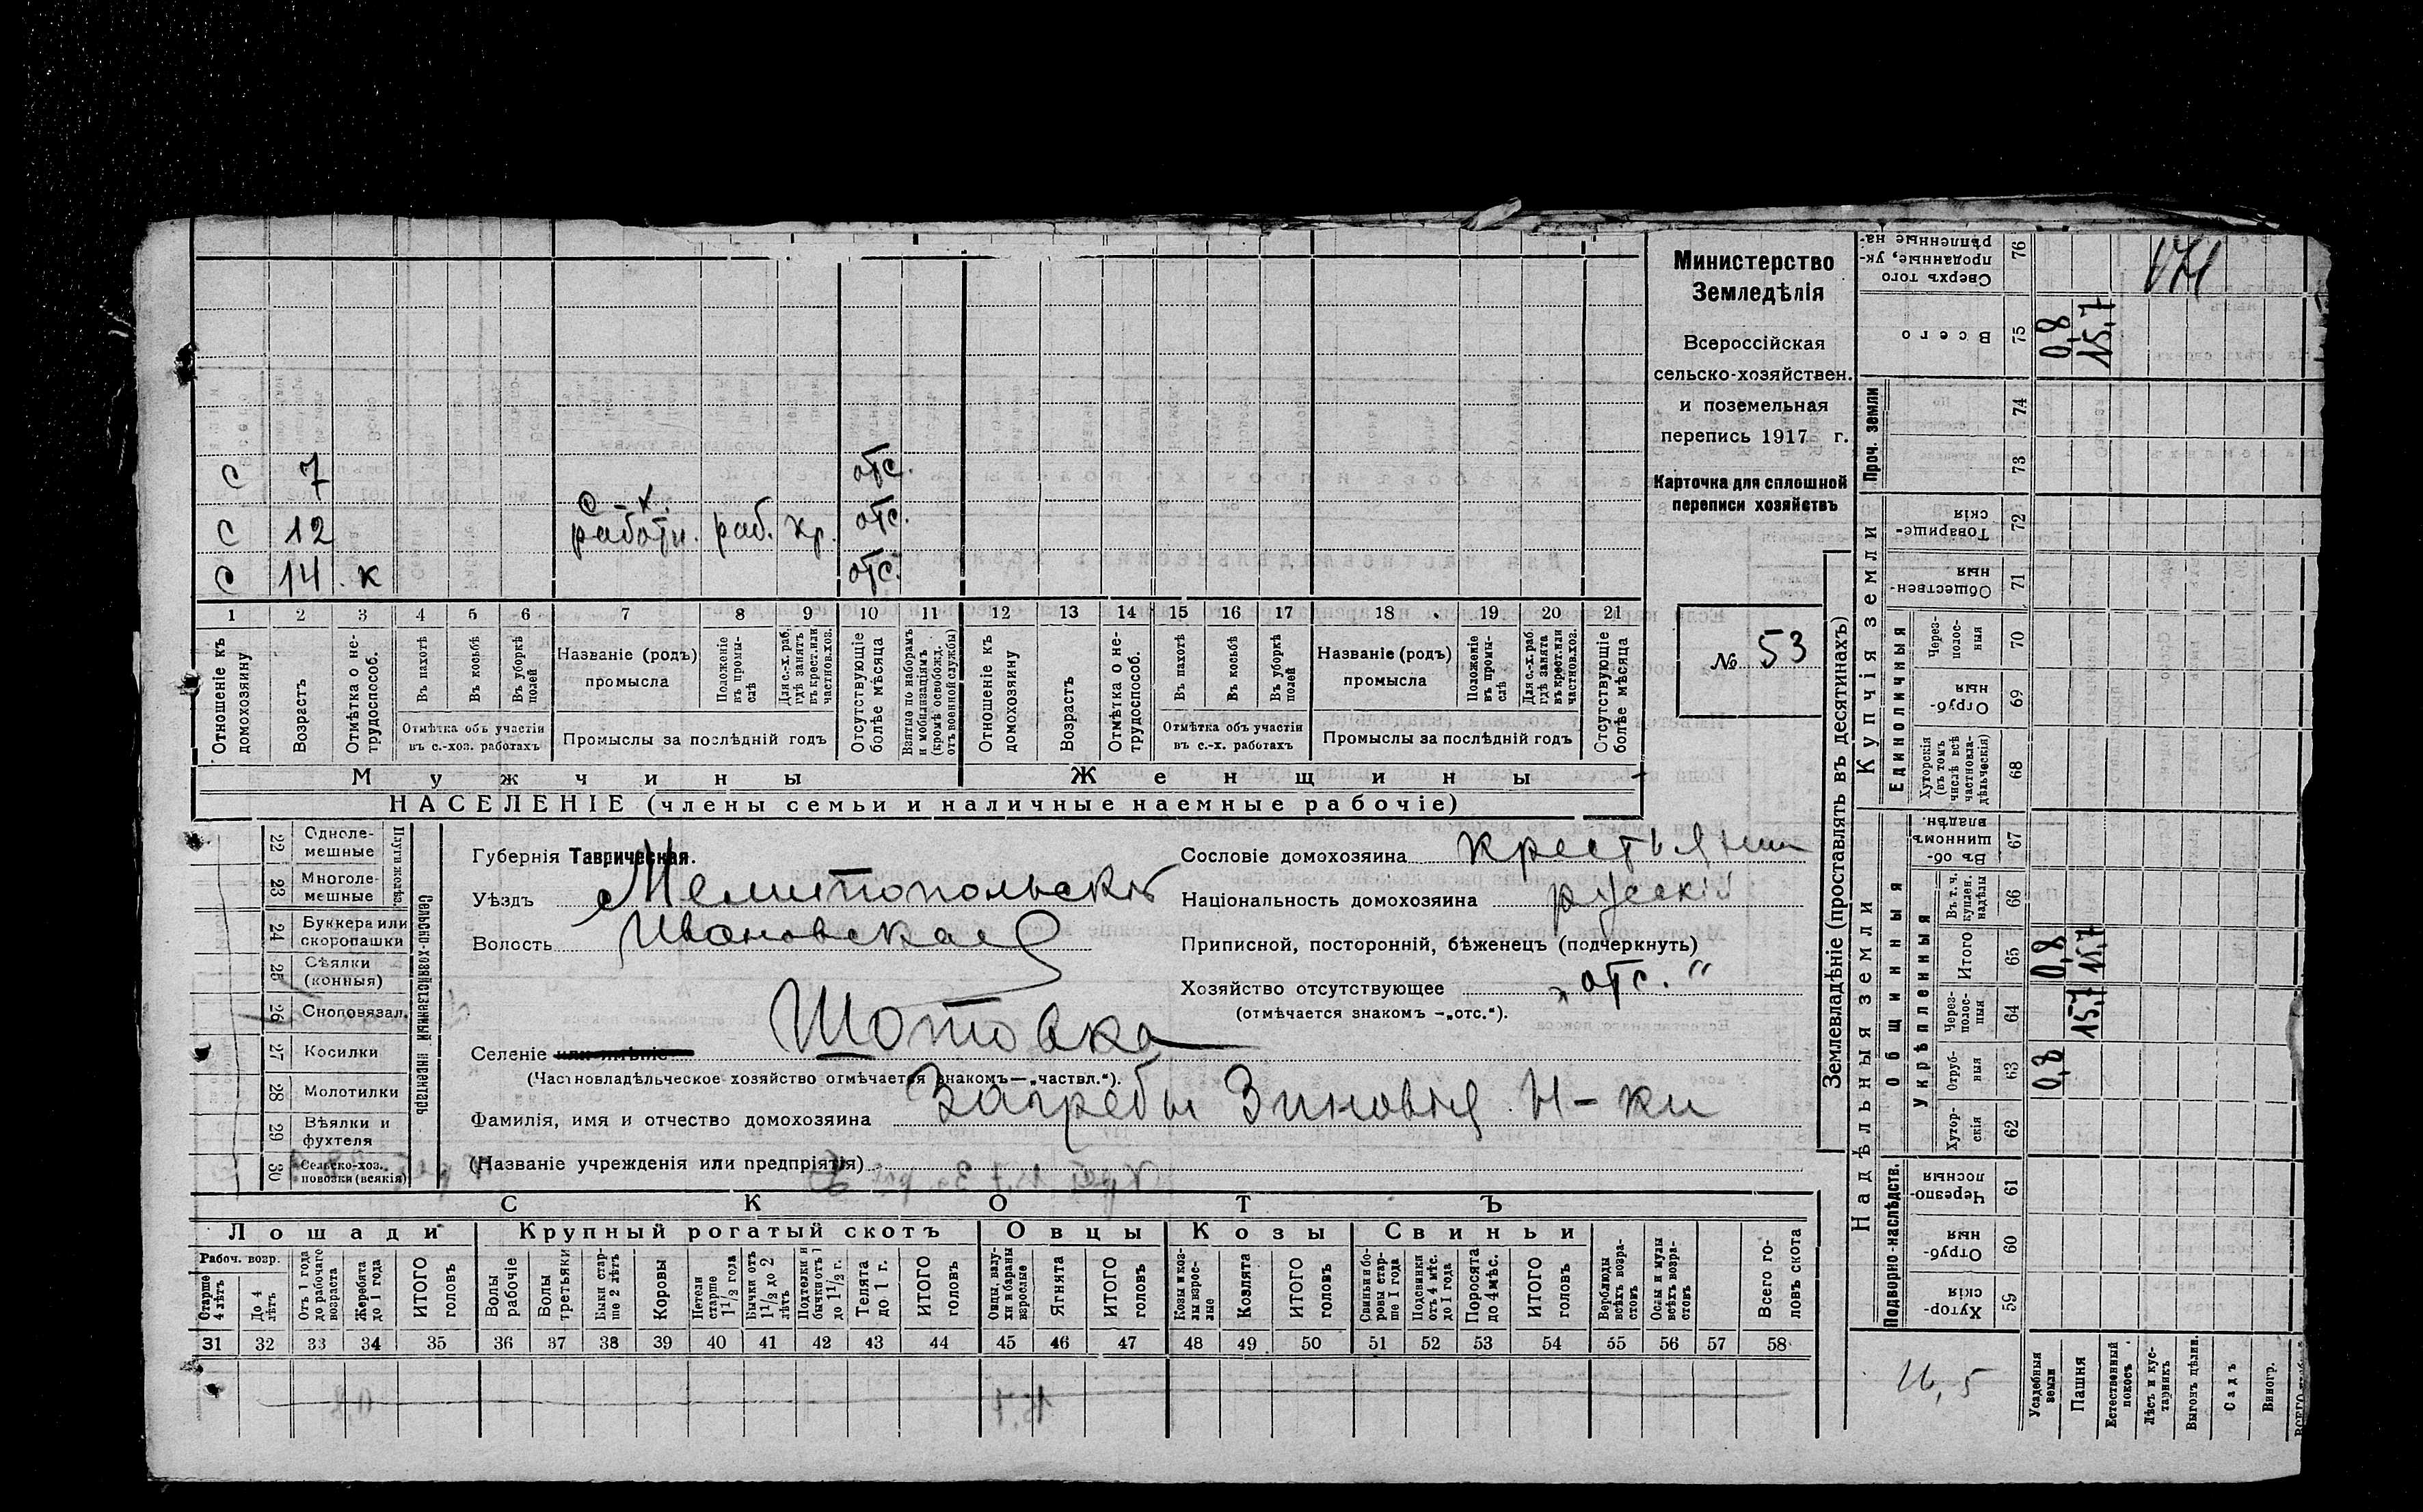 с 7 отс.
с.-х.
с 12 работн. раб. кр. отс.
с 14 к отс.
1 2 3 4 5 6 7 8 9 10 11 12 13 14 15 16 17 18 19 20 21
Отношеніе къ домохозяину
Возрастъ
Отмѣтка о не-трудоспособ.
Въ пахотѣ
Въ косьбѣ
Въ уборкѣ полей
Отмѣтка объ участіи въ с.-хоз. работахъ
Названіе (родъ) промысла
Положеніе въ промы-слѣ
Для с.-х. раб. гдѣ занятъ въ крест. или частнов. хоз.
Промыслы за послѣдній годъ
Отсутствующіе болѣе мѣсяца
Взятые по наборамъ и мобилизаціямъ (кромѣ освобожд. отъ военной службы)
Отношеніе къ домохозяину
Возрастъ
Отмѣтка о не-трудоспособ.
Въ пахотѣ
Въ косьбѣ
Въ уборкѣ полей
Отмѣтка объ участіи въ с.-х. работахъ
Названіе (родъ) промысла
Положеніе въ промы-слѣ
Для с.-х. раб. гдѣ занята въ крест. или частнов. хоз.
Промыслы за послѣдній годъ
Отсутствующіе болѣе мѣсяца
Мужчины
Женщины
НАСЕЛЕНІЕ (члены семьи и наличные наемные рабочіе)
Министерство
Земледѣлія
Всероссійская
сельско-хозяйствен.
и поземельная
перепись 1917 г.
Карточка для сплошной
переписи хозяйствъ
№ 53
22 Одноле-мешные
23 Многоле-мешные
Плуги желѣз.
24 Буккера или скоропашки
25 Сѣялки (конныя)
26 Сноповязал.
27 Косилки
28 Молотилки
29 Вѣялки и фухтеля
30 Сельско-хоз. повозки (всякія)
Сельско-хозяйственный инвентарь
Губернія Таврическая.
Уѣздъ Мелитопольскій
Волость Ивановская
Селеніе или имѣніе Шотовка
(Частновладѣльческое хозяйство отмѣчается знакомъ—„частвл.“).
Сословіе домохозяина крестьянин
Національность домохозяина русскій
Приписной, посторонній, бѣженецъ (подчеркнуть)
Хозяйство отсутствующее „отс.“
(отмѣчается знакомъ -„отс.“).
Фамилія, имя и отчество домохозяина Загребы Зиновія Н-ки
(Названіе учрежденія или предпріятія)
СКОТЪ
Лошади
Крупный рогатый скотъ
Овцы
Козы
Свиньи
Рабоч. возр.
Старше 4 лѣтъ
До 4 лѣтъ
Отъ 1 года до рабочаго возраста
Жеребята до 1 года
ИТОГО головъ
Волы рабочіе
Волы третьяки
Быки стар-ше 2 лѣтъ
Коровы
Нетели старше 1 1/2 года
Бычки отъ 1 1/2 до 2 лѣтъ
Подтелки и бычки отъ 1 до 1 1/2 г.
Телята до 1 г.
ИТОГО головъ
Овцы, валу-хи и бараны взрослые
Ягнята
ИТОГО головъ
Козы и коз-лы взрос-лые
Козлята
ИТОГО головъ
Свиньи и бо-ровы стар-ше 1 года
Подсвинки отъ 4 мѣс. до 1 года
Поросята до 4 мѣс.
ИТОГО головъ
Верблюды всѣхъ возра-стовъ
Ослы и мулы всѣхъ возра-стовъ
Всего го-ловъ скота
31 32 33 34 35 36 37 38 39 40 41 42 43 44 45 46 47 48 49 50 51 52 53 54 55 56 57 58
Землевладѣніе (проставлять въ десятинахъ)
Надѣльныя земли
Купчія земли
Проч. земли
Подворно-наслѣдств.
Общинныя
Укрѣпленныя
Единоличныя
Сверхъ того проданные, ук-рѣпленные на-
76
Всего 75 0,8 15,7
74
73
Товарище-скія 72
Обществен-ныя 71
Через-полос-ныя 70
Отруб-ныя 69
Хуторскія (въ томъ числѣ всѣ частновла-дѣльческія) 68
Въ об-щинномъ владѣн. 67
Въ т. ч. куплен. надѣлы 66
Итого 65 0,8 15,7
Через-полос-ныя 64 15,7
Отруб-ныя 63 0,8
Хутор-скія 62
Черезпо-лосныя 61
Отруб-ныя 60
Хутор-скія 59
16,5
Усадебныя земли
Пашня
Естественный покосъ
Лѣсъ и кус-тарникъ
Выгонъ дѣлин.
Садъ
Виногр.